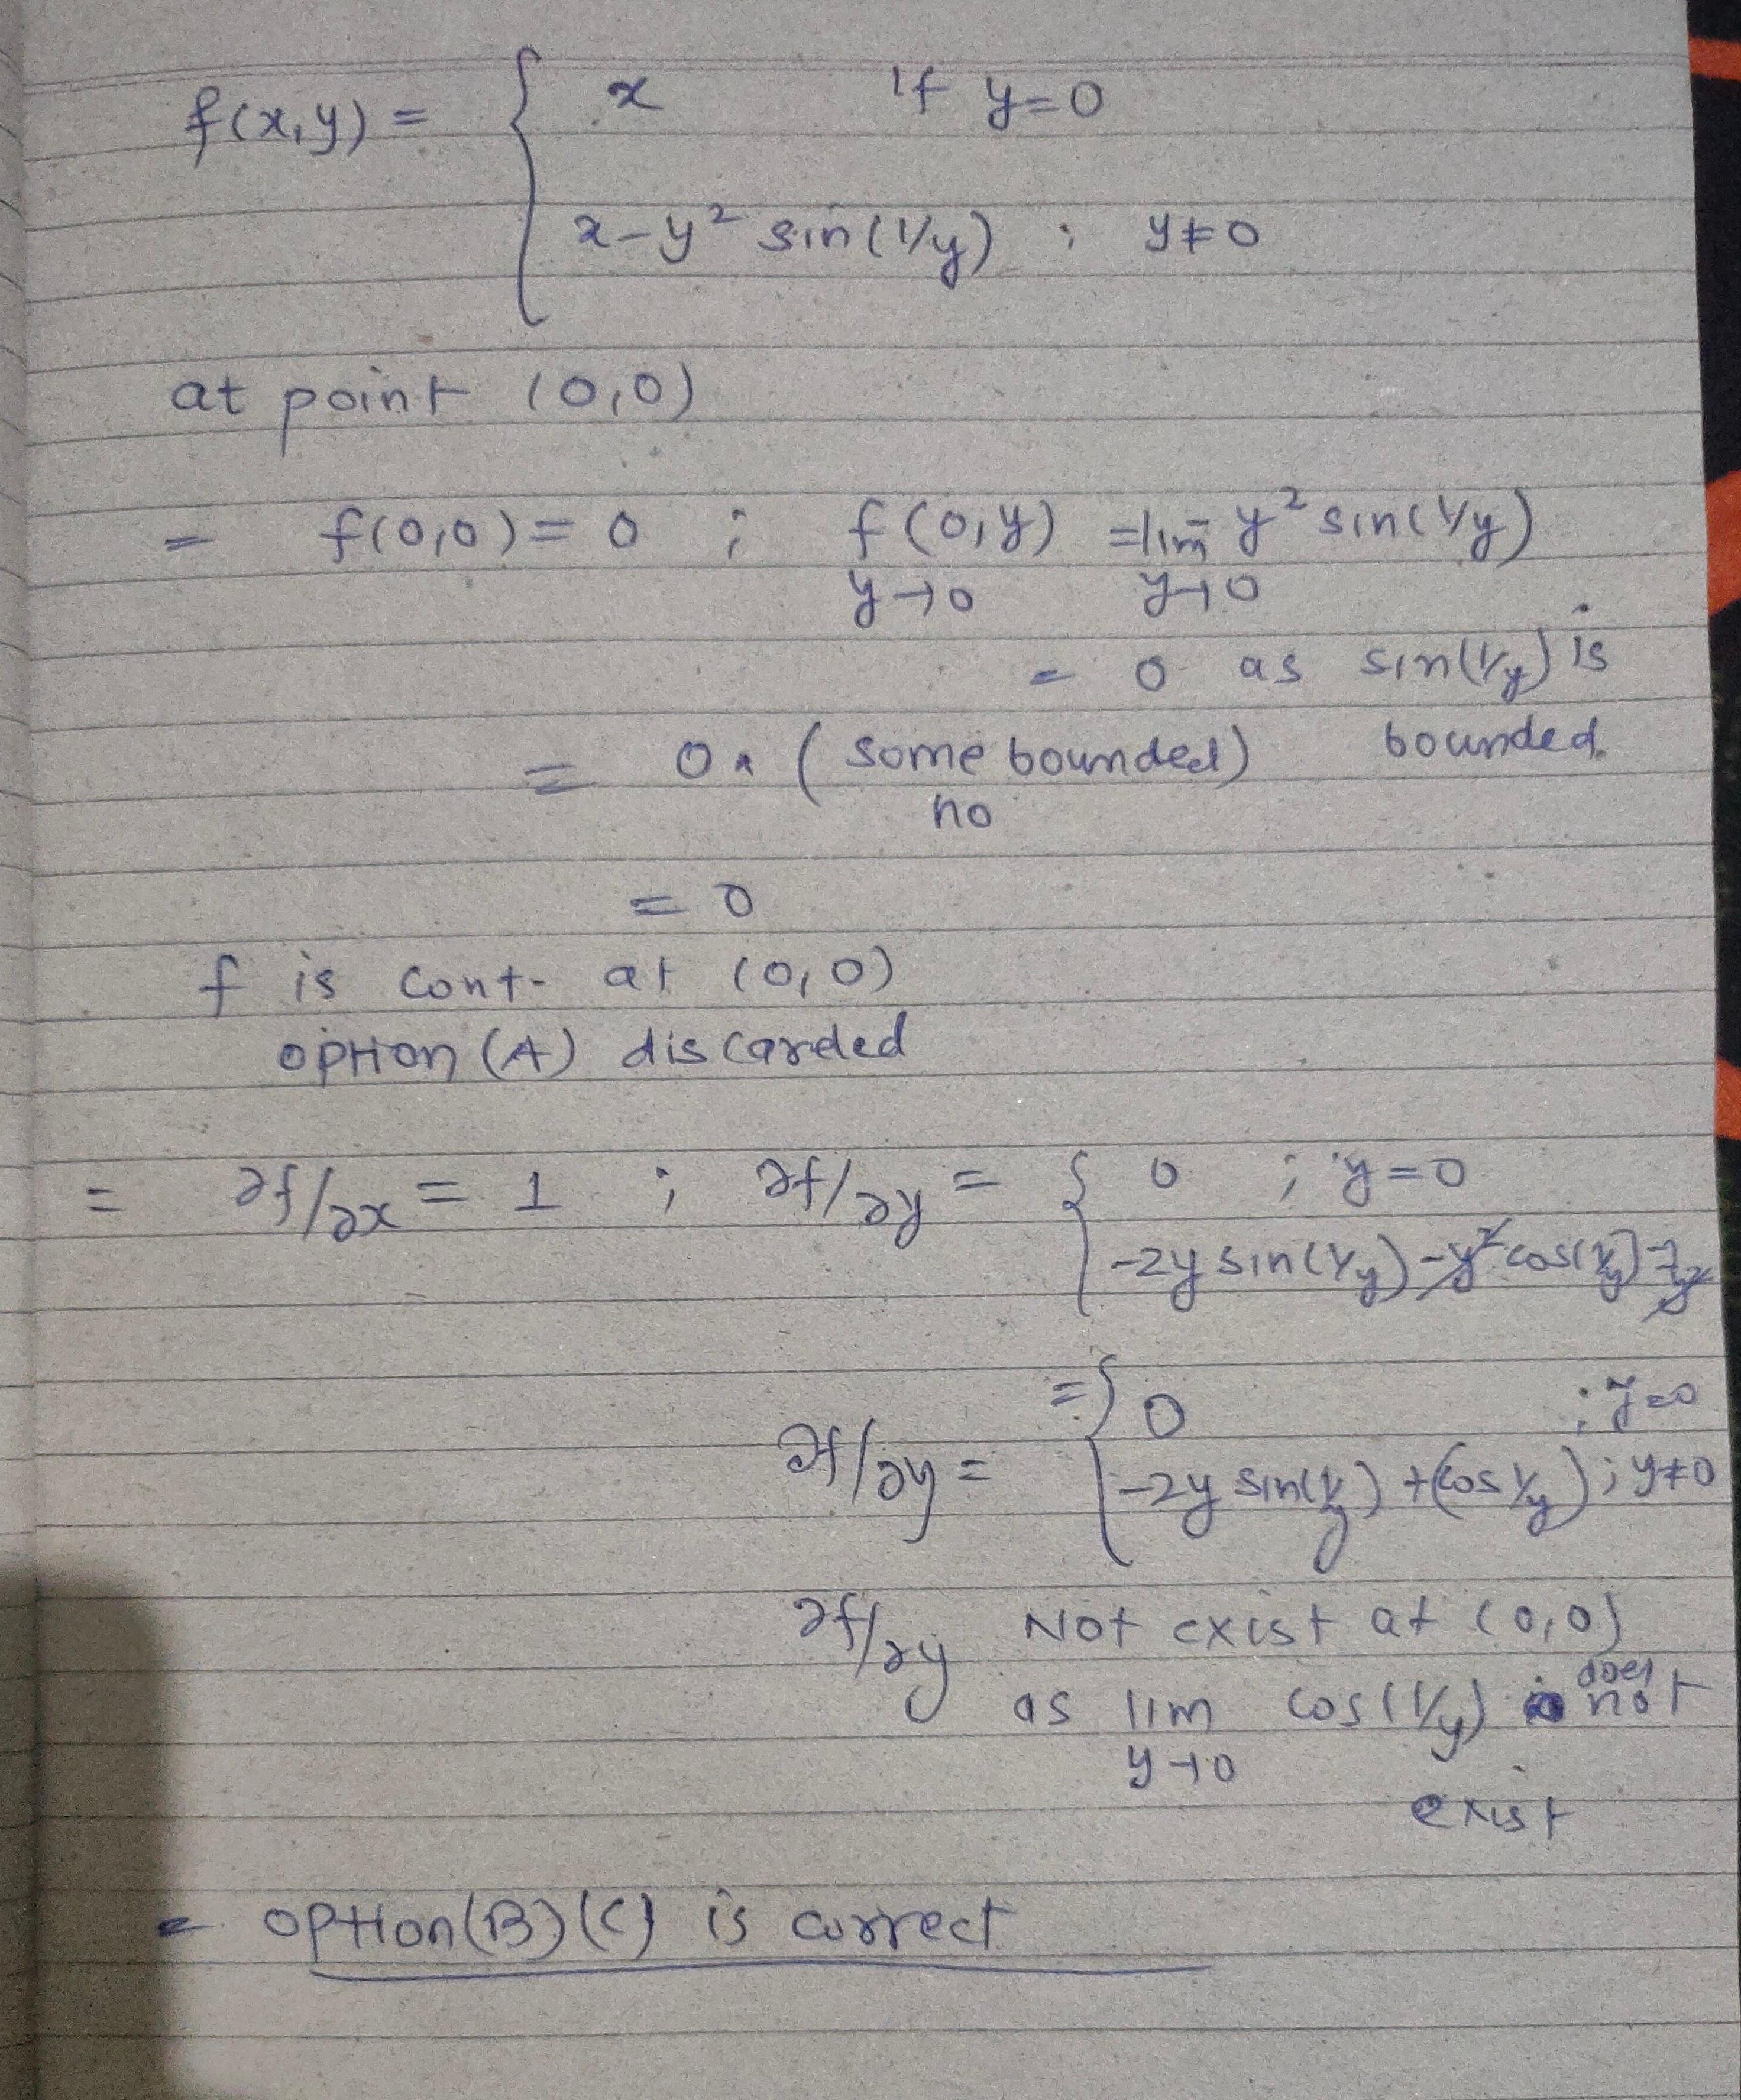 f(x,y) = { x if y=0
x-y² sin(1/y) ; y≠0
at point (0,0)
= f(0,0) = 0 ; f(0,y) = lim - y² sin(1/y)
y→0 y→0
= 0 as sin(1/y) is
= 0 × (some bounded) bounded.
no
= 0
f is cont. at (0,0)
option (A) discarded
= ∂f/∂x = 1 ; ∂f/∂y = { 0 ; y=0
-2y sin(1/y) - y² cos(1/y) -1/y²
= { 0 ; y=0
∂f/∂y = -2y sin(1/y) + (cos 1/y) ; y≠0
∂f/∂y Not exist at (0,0)
as lim cos(1/y) does not
y→0
exist
= option(B)(C) is correct